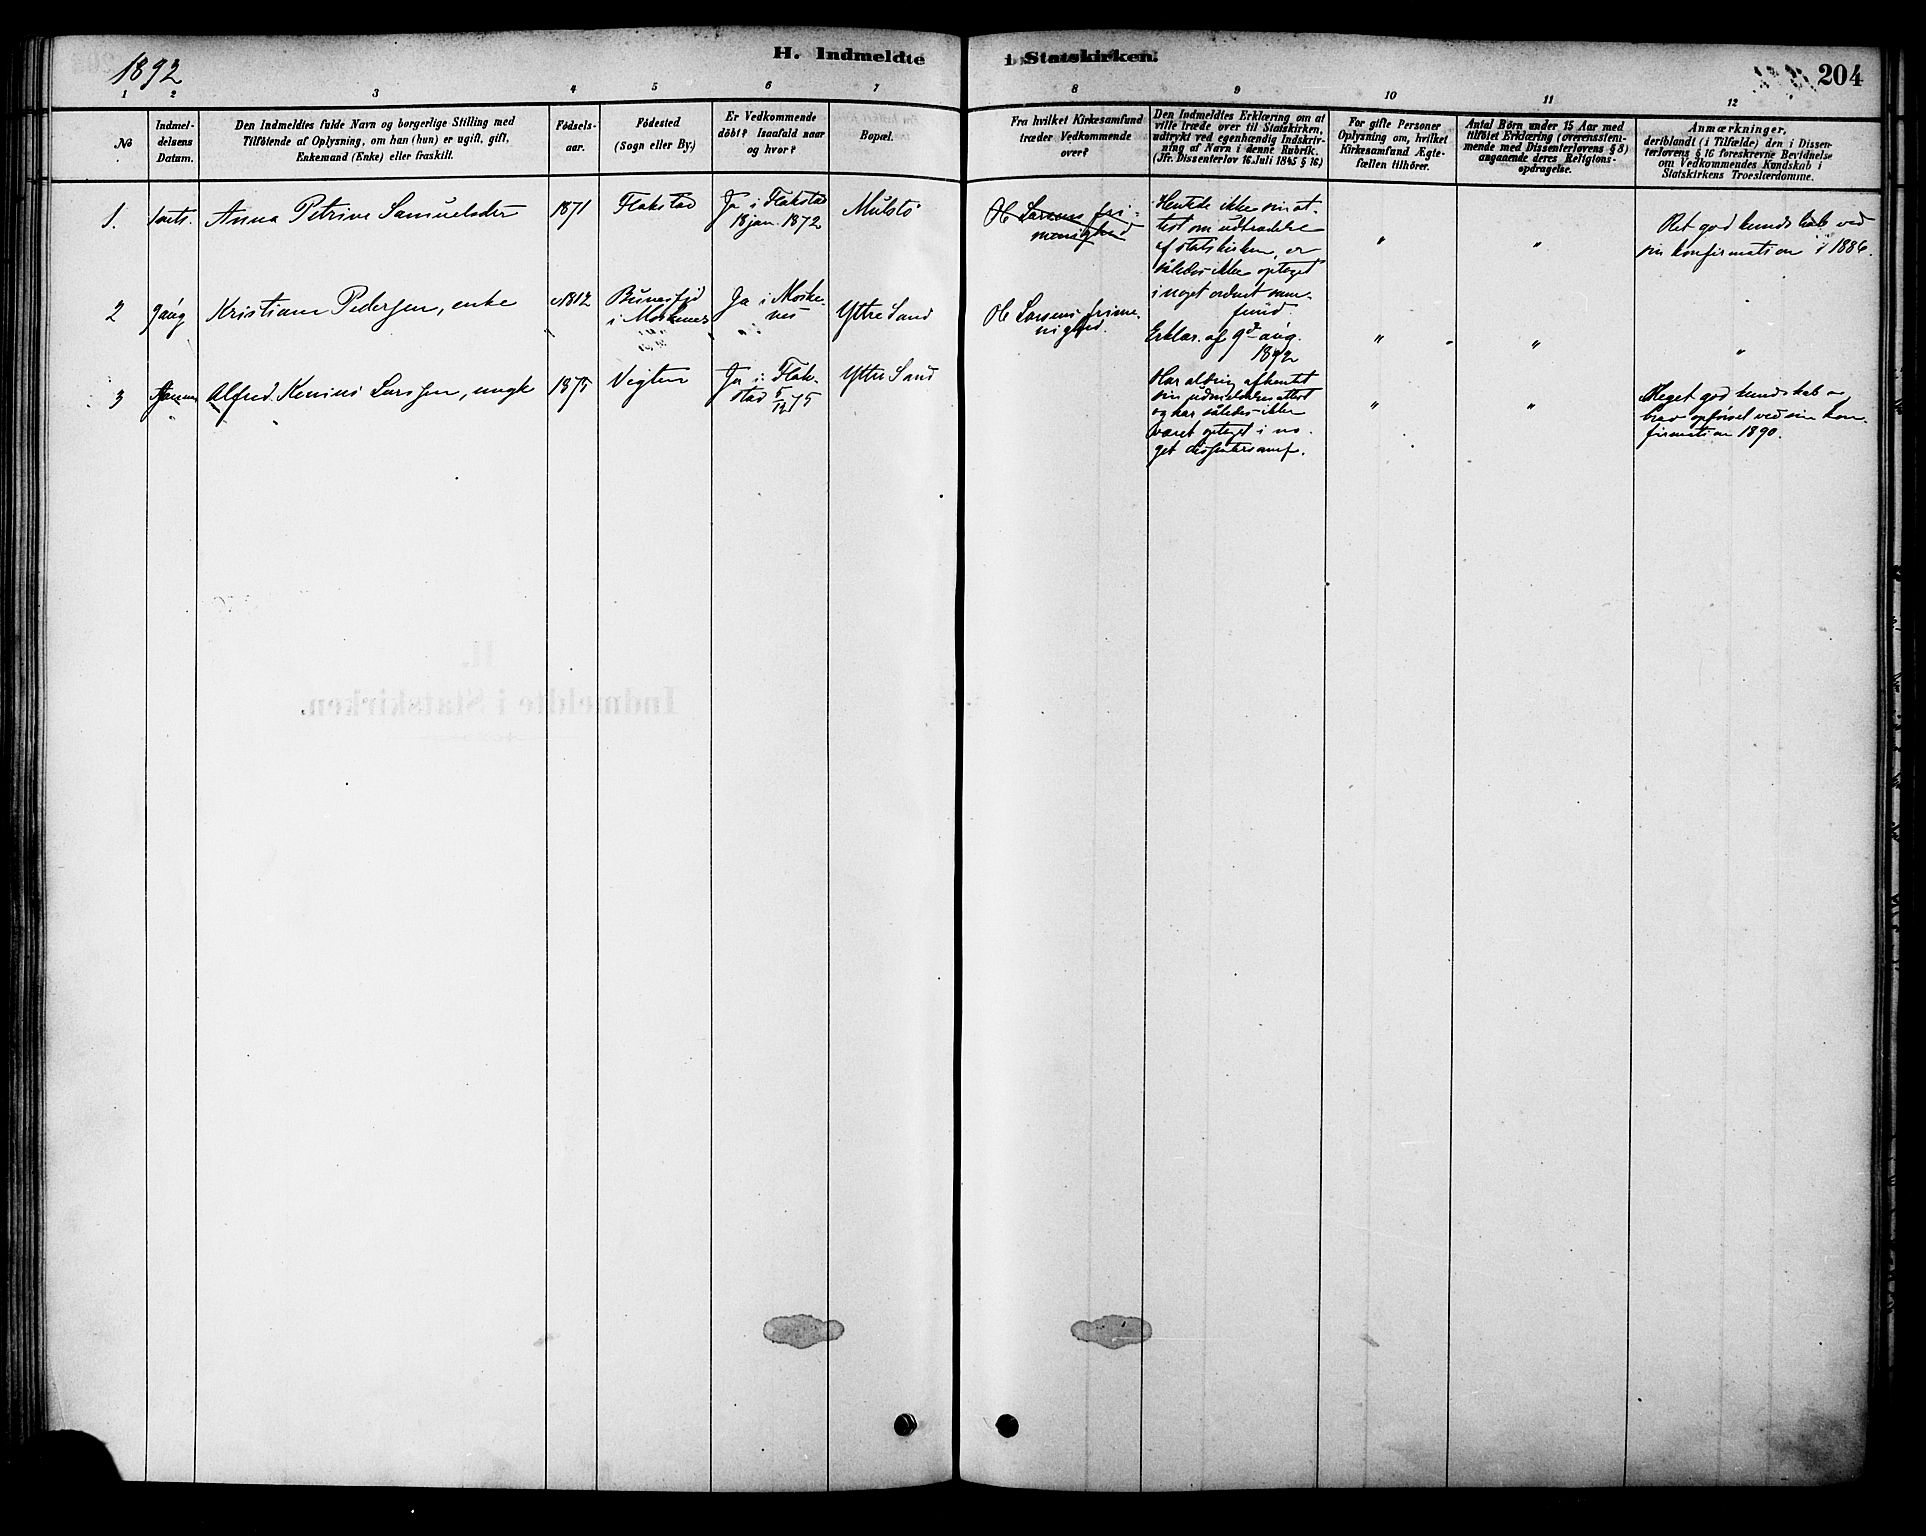 1892
H. Indmeldte
i Statskirken.
204
1 2 3 4 5 6 7 8 9 10 11 12
No
Indmel-
delsens
Datum.
Den Indmeldtes fulde Navn og borgerlige Stilling med
Tilföiende af Oplysning, om han (hun) er ugift, gift,
Enkemand (Enke) eller fraskilt.
Födsels-
aar.
Födested
(Sogn eller By.)
Er Vedkommende
döbt? Isaafald naar
og hvor?
Bopæl.
Fra hvilket Kirkesamfund
træder Vedkommende
over?
Den Indmeldtes Erklæring om at
ville træde over til Statskirken,
udtrykt ved egenhændig Indskriv-
ning af Navn i denne Rubrik.
(Jfr. Dissenterlov 16 Juli 1845 § 16)
For gifte Personer
Oplysning om, hvilket
Kirkesamfund Ægte-
fællen tilhörer.
Antal Börn under 15 Aar med
tilföiet Erklæring (overensstem-
mende med Dissenterlovens § 8)
angaaende deres Religions-
opdragelse.
Anmærkninger,
deriblandt (i Tilfælde) den i Dissen-
terlovens § 16 foreskrevne Bevidnelse
om Vedkommendes Kundskab i
Statskirkens Troeslærdomme.
1.
Anna Petrine Samuelsdtr
1871
Flakstad
Ja i Flakstad
18 jan. 1872
Mulstö
Ol Larsens fri-
menighed
Hentede ikke sin at-
test om udtrædelse
af statskirken, er
således ikke optaget
i noget ordnet sam-
fund.
"
"
Ret god kundskab ved
sin konfirmation i 1886.
2
9 aug
Kristiane Pedersen, enke
1812
i Moskenes
Ja i Moske-
nes
Yttre Sand
Ol Larsens frime-
nighed.
Erklær. af 9de aug.
1892
"
"
"
3
Alfred Larssen, ungk
1875
Vigten
Ja i Flak-
stad 5/12 75
Yttre Sand
Har aldrig afhentet
sin udmeldelsesattest
og har således ikke
været optaget i no-
get dissentersamf.
"
"
Meget god kundskab og
brav opförsel ved sin kon-
firmation 1890.